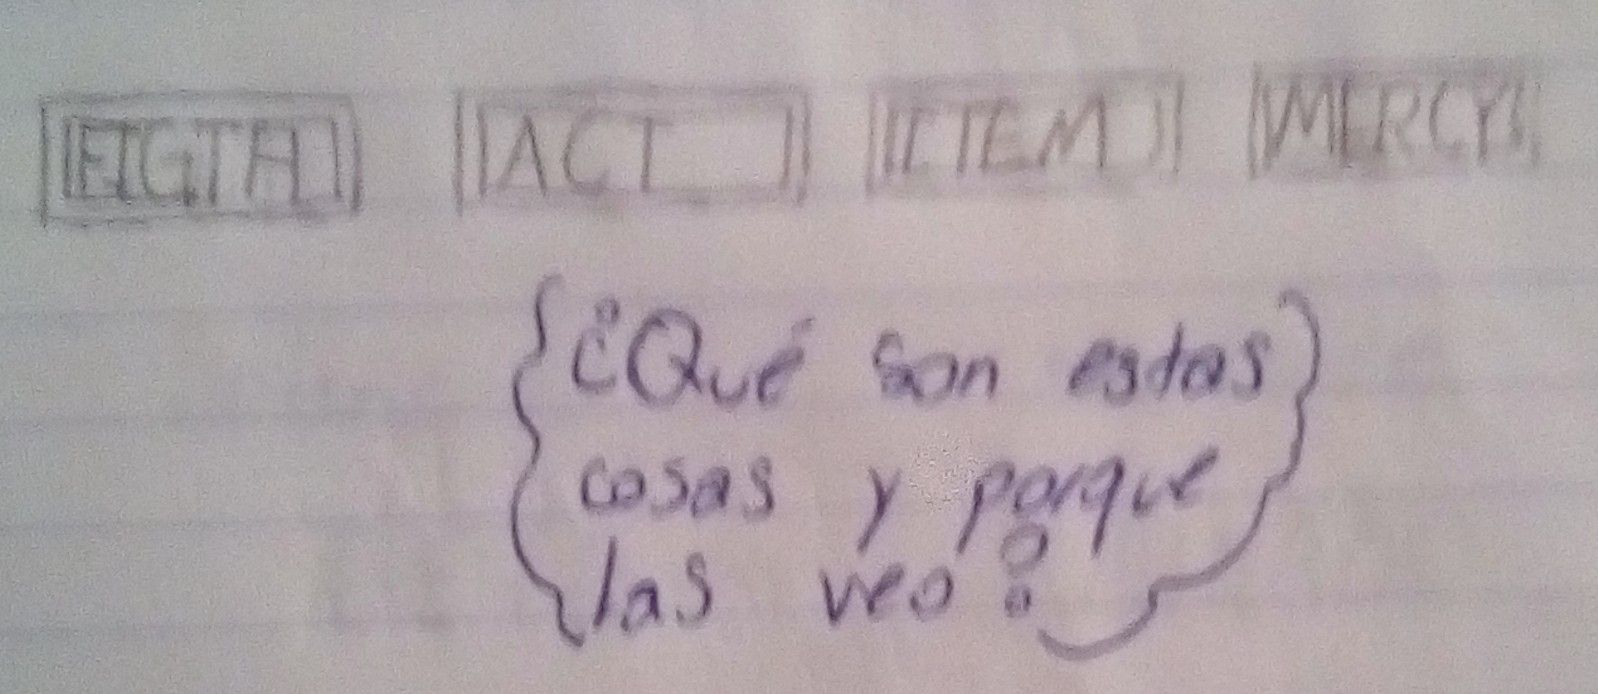 FIGTH ACT ITEM MERCY
¿Qué son estas
cosas y porque
las veo?